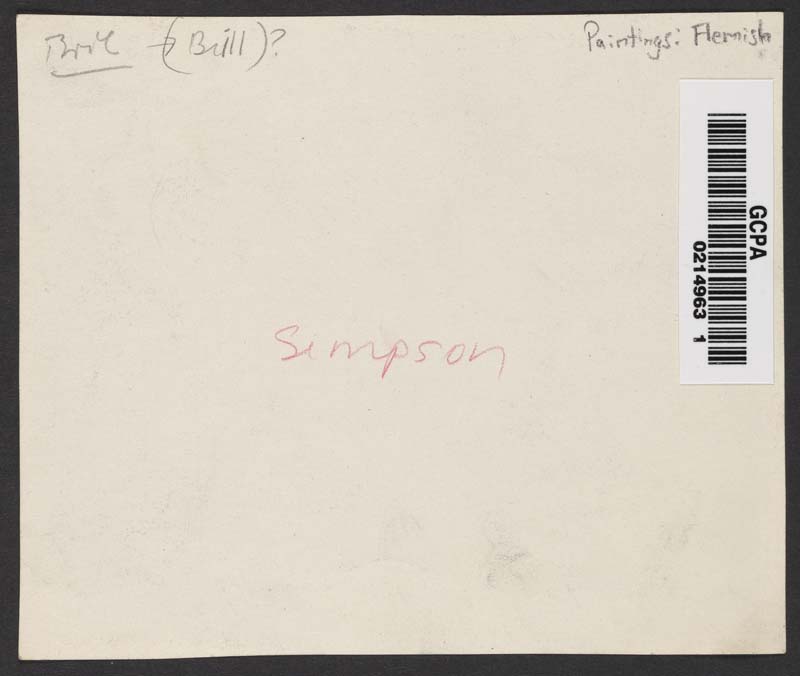 Bril (Brill)?
Paintings: Flemish
GCPA
0214963 1
Simpson